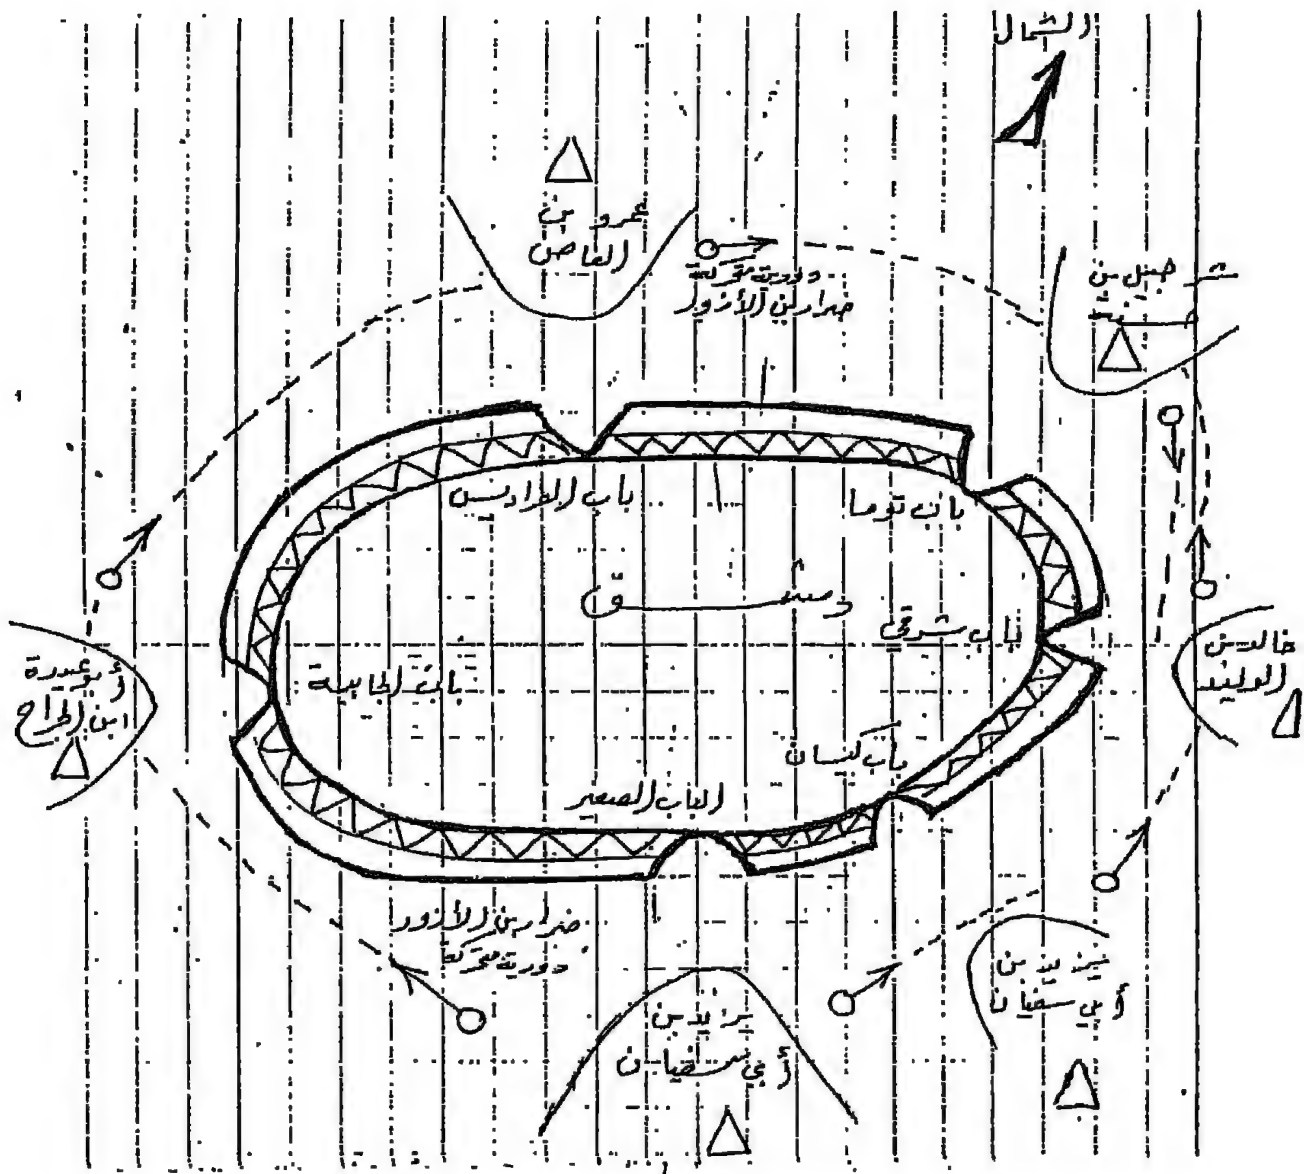 الشمال
عمرو بن
العاص
شرحبيل بن
حسنة
دورية متحركة
ضرار بن الأزور
باب الفراديس
باب توما
دمشق
باب شرقي
خالد بن
الوليد
أبو عبيدة
ابن الجراح
باب الجابية
باب كيسان
الباب الصغير
ضرار بن الأزور
دورية متحركة
يزيد بن
أبي سفيان
يزيد بن
أبي سفيان